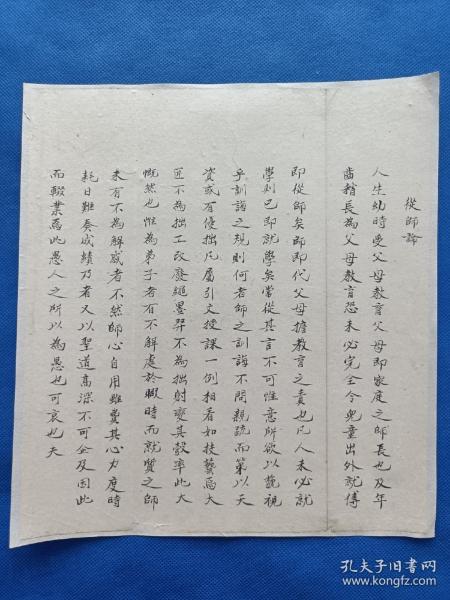 從師論
人生幼時受父母教育父母即家庭之師長也及年
齒稍長為父母教育恐未必完全令兒童出外就傅
即從師矣師即代父母擔教育之責也凡人未必就
學則已即就學矣當從其言不可惟意所欲以藐視
乎訓誨之規則何者師之訓誨不問親疏而第以天
資或有優拙凡屬引文授課一例相看如扶藝焉大
匠不為拙工改廢繩墨羿不為拙射變其彀率此大
慨然也惟為弟子者有不解處於暇時而就質之師
未有不為解惑者不然師心自用雖費其心力度時
耗日難奏成績乃者又以聖道高深不可企及因此
而輟業焉此愚人之所以為愚也可哀也夫
孔夫子旧书网
www.kongfz.com